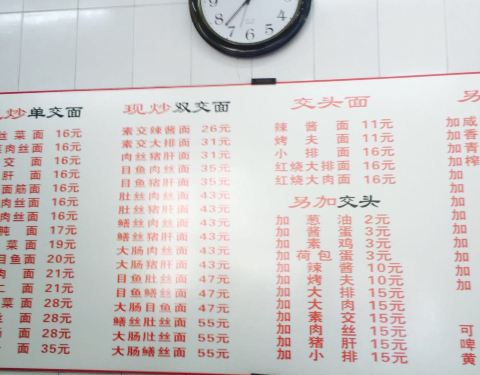 炒单交面
丝菜面 16元
肉丝面 16元
交面 16元
肝面 16元
面筋面 16元
肉丝面 16元
肉丝面 16元
面 17元
菜面 19元
目鱼面 20元
肉面 21元
面 21元
菜面 28元
丝面 28元
肠面 28元
面 35元
现炒双交面
素交辣酱面 26元
素交大排面 31元
肉丝猪肝面 31元
目鱼肉丝面 35元
目鱼猪肝面 35元
肚丝肉丝面 43元
肚丝猪肝面 43元
鳝丝肉丝面 43元
鳝丝猪肝面 43元
大肠肉丝面 43元
大肠猪肝面 43元
目鱼肚丝面 47元
目鱼鳝丝面 47元
大肠目鱼面 47元
鳝丝肚丝面 55元
大肠肚丝面 55元
大肠鳝丝面 55元
交头面
辣酱面 11元
烤夫面 11元
小排面 16元
红烧大排面 16元
红烧大肉面 16元
另加交头
加葱油 2元
加酱蛋 3元
加素鸡 3元
加荷包蛋 3元
加辣酱 10元
加烤夫 10元
加大排 15元
加大肉 15元
加素交 15元
加肉丝 15元
加猪肝 15元
加小排 15元
另
加咸
加香
加青
加榨
加
加
加
加
加
加
加
可
啤
黄
12
1
2
3
4
5
6
7
8
9